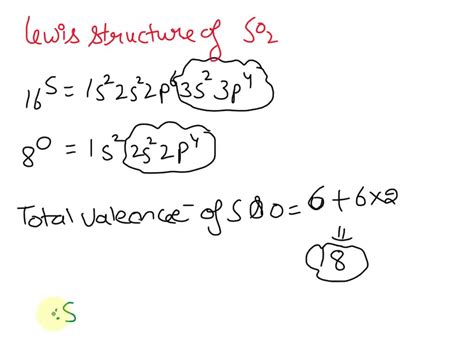 Lewis structure of SO₂
₁₆S = 1s² 2s² 2p⁶ 3s² 3p⁴
₈O = 1s² 2s² 2p⁴
Total valence e⁻ of S & O = 6 + 6×2
=
18
:S